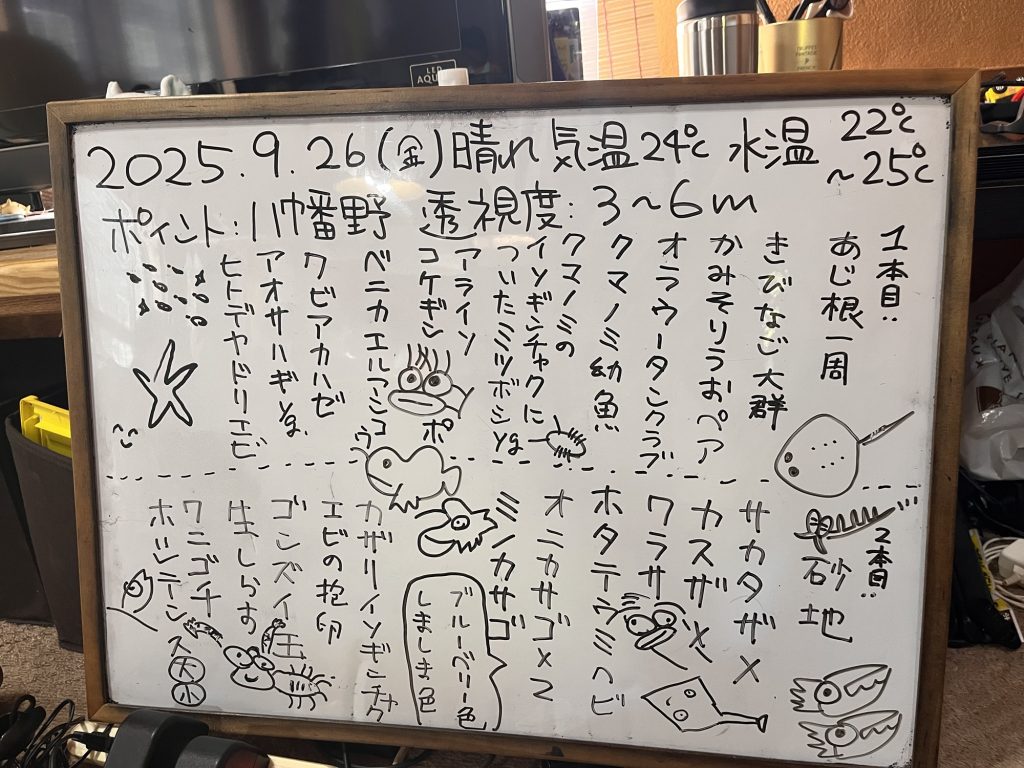 2025.9.26(金)晴れ 気温24℃ 水温 22℃~25℃
ポイント:八幡野 透視度: 3~6m
1本目:
あじ根一周
きびなご大群
かみそりうおペア
オラウータンクラブ
クマノミ幼魚
クマノミの
イソギンチャクに
ついたミツボシyg
アライソ
コケギンポ
ベニカエルアンコウ
クビアカハゼ
アオサハギyg
ヒトデヤドリエビ
2本目:
砂地
サカタザメ
カスザメ
ワラサ
ホタテウミヘビ
オニカサゴ×2
ミノカサゴ
ブルーベリー色
しましま色
カザリイソギンチャク
エビの抱卵
ゴンズイ玉
生しらす
ワニゴチ
ホシテンス
大
小
LED
AQU